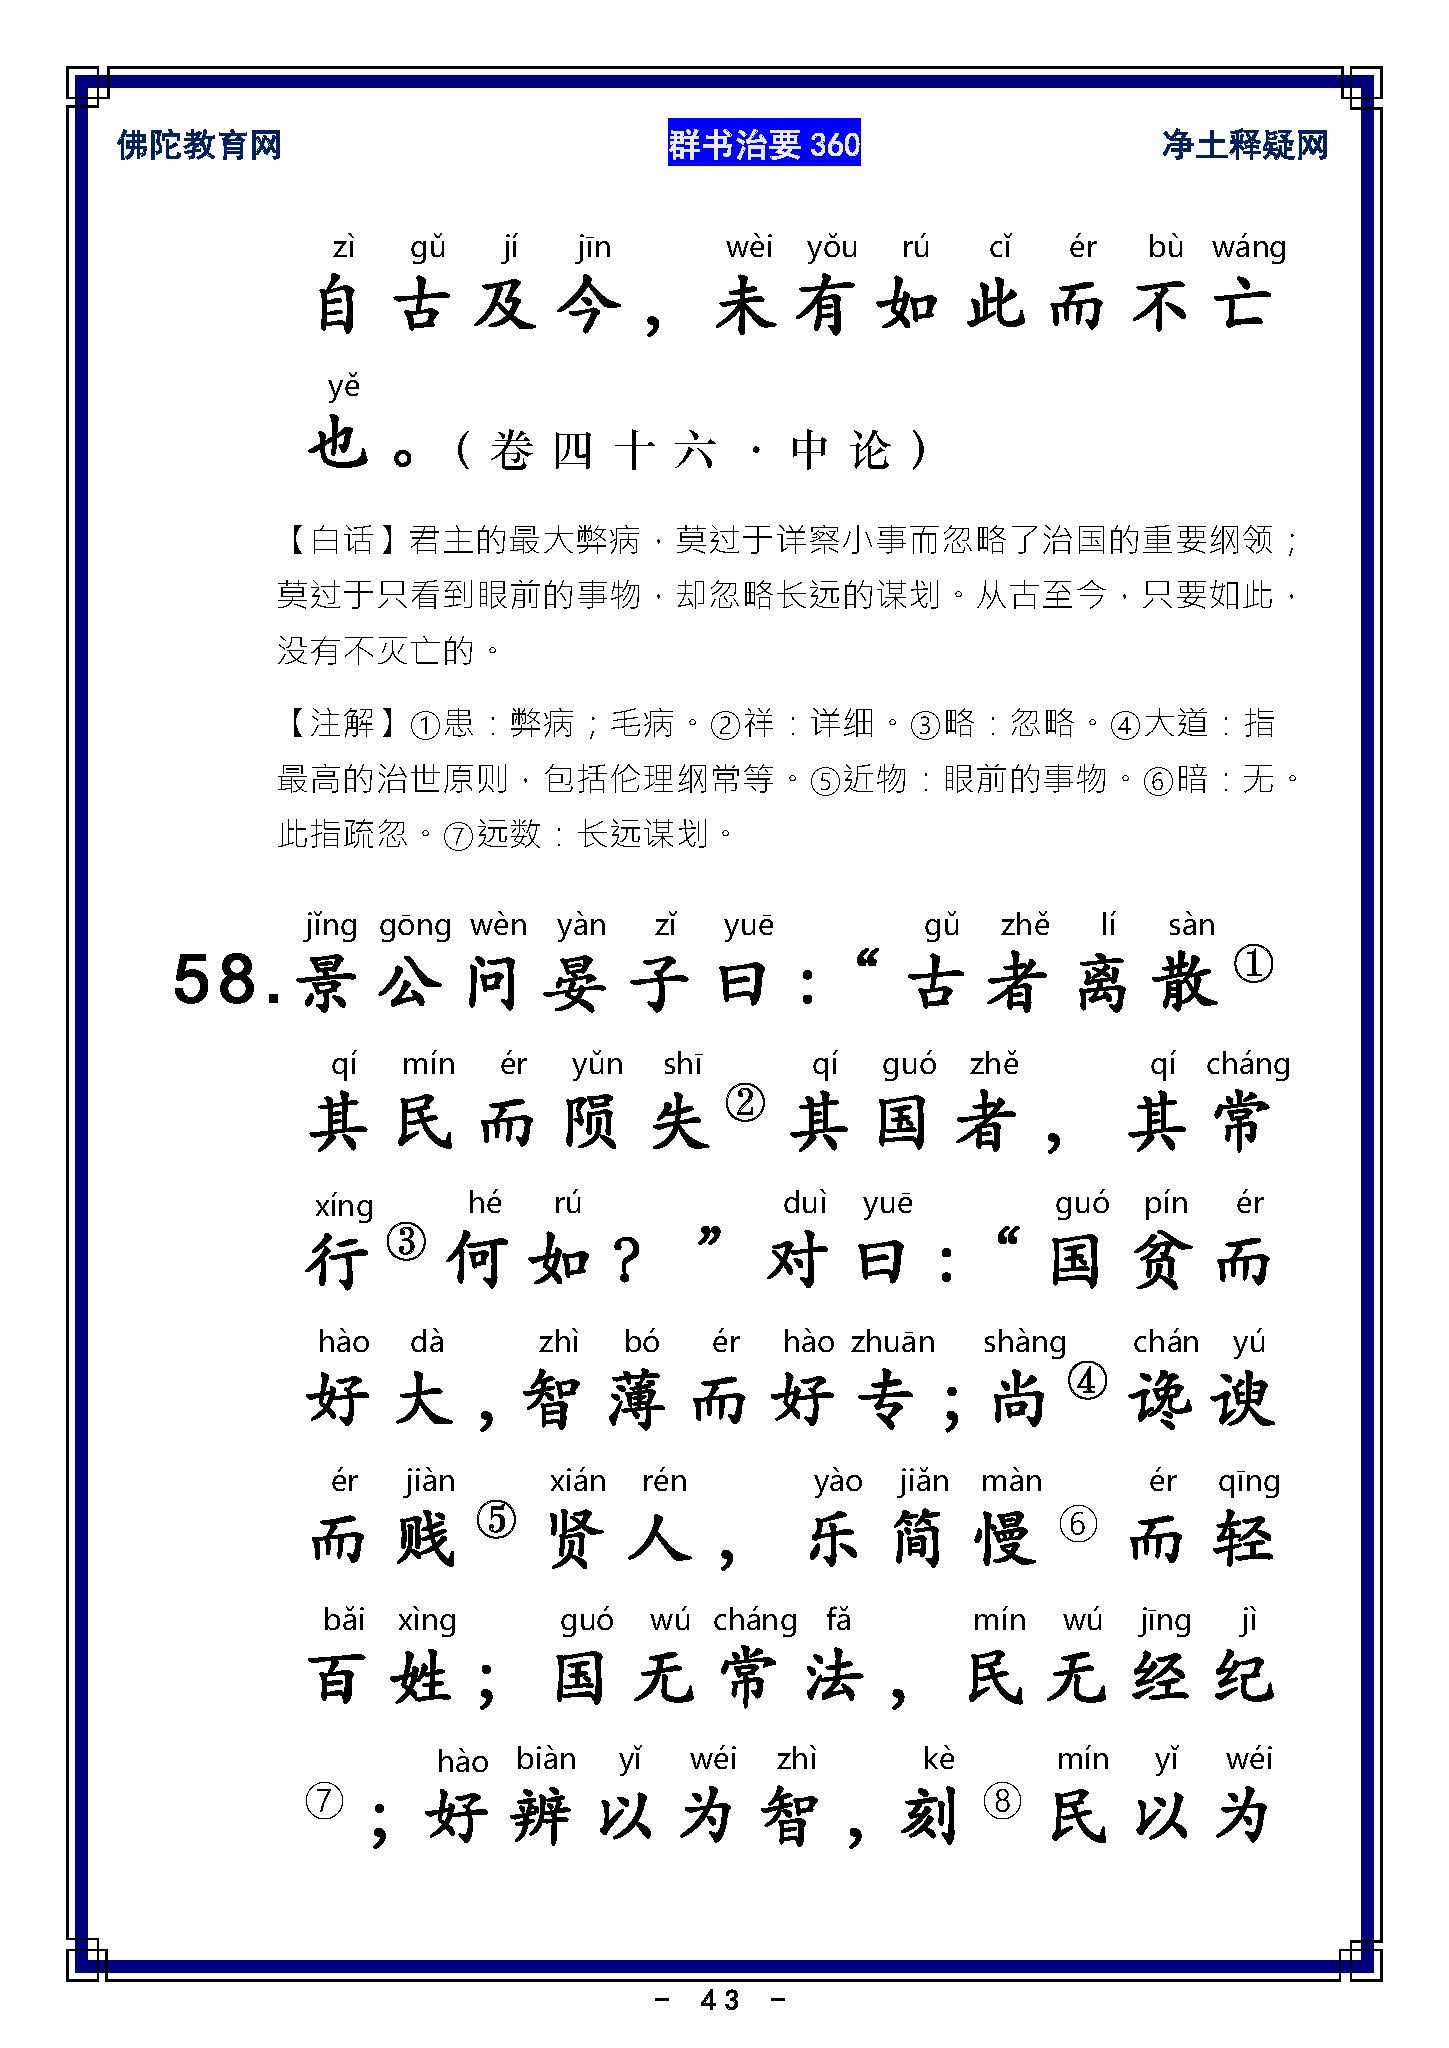 佛陀教育网 群书治要 360 净土释疑网
zì gǔ jí jīn wèi yǒu rú cǐ ér bù wáng
自古及今，未有如此而不亡
yě
也。（卷四十六·中论）
【白话】君主的最大弊病，莫过于详察小事而忽略了治国的重要纲领；
莫过于只看到眼前的事物，却忽略长远的谋划。从古至今，只要如此，
没有不灭亡的。
【注解】①患：弊病；毛病。②祥：详细。③略：忽略。④大道：指
最高的治世原则，包括伦理纲常等。⑤近物：眼前的事物。⑥暗：无。
此指疏忽。⑦远数：长远谋划。
jǐng gōng wèn yàn zǐ yuē gǔ zhě lí sàn
58.景公问晏子曰：“古者离散①
qí mín ér yǔn shī qí guó zhě qí cháng
其民而陨失②其国者，其常
xíng hé rú duì yuē guó pín ér
行③何如？”对曰：“国贫而
hào dà zhì bó ér hào zhuān shàng chán yú
好大，智薄而好专；尚④谗谀
ér jiàn xián rén yào jiǎn màn ér qīng
而贱⑤贤人，乐简慢⑥而轻
bǎi xìng guó wú cháng fǎ mín wú jīng jì
百姓；国无常法，民无经纪
hào biàn yǐ wéi zhì kè mín yǐ wéi
⑦；好辨以为智，刻⑧民以为
- 43 -